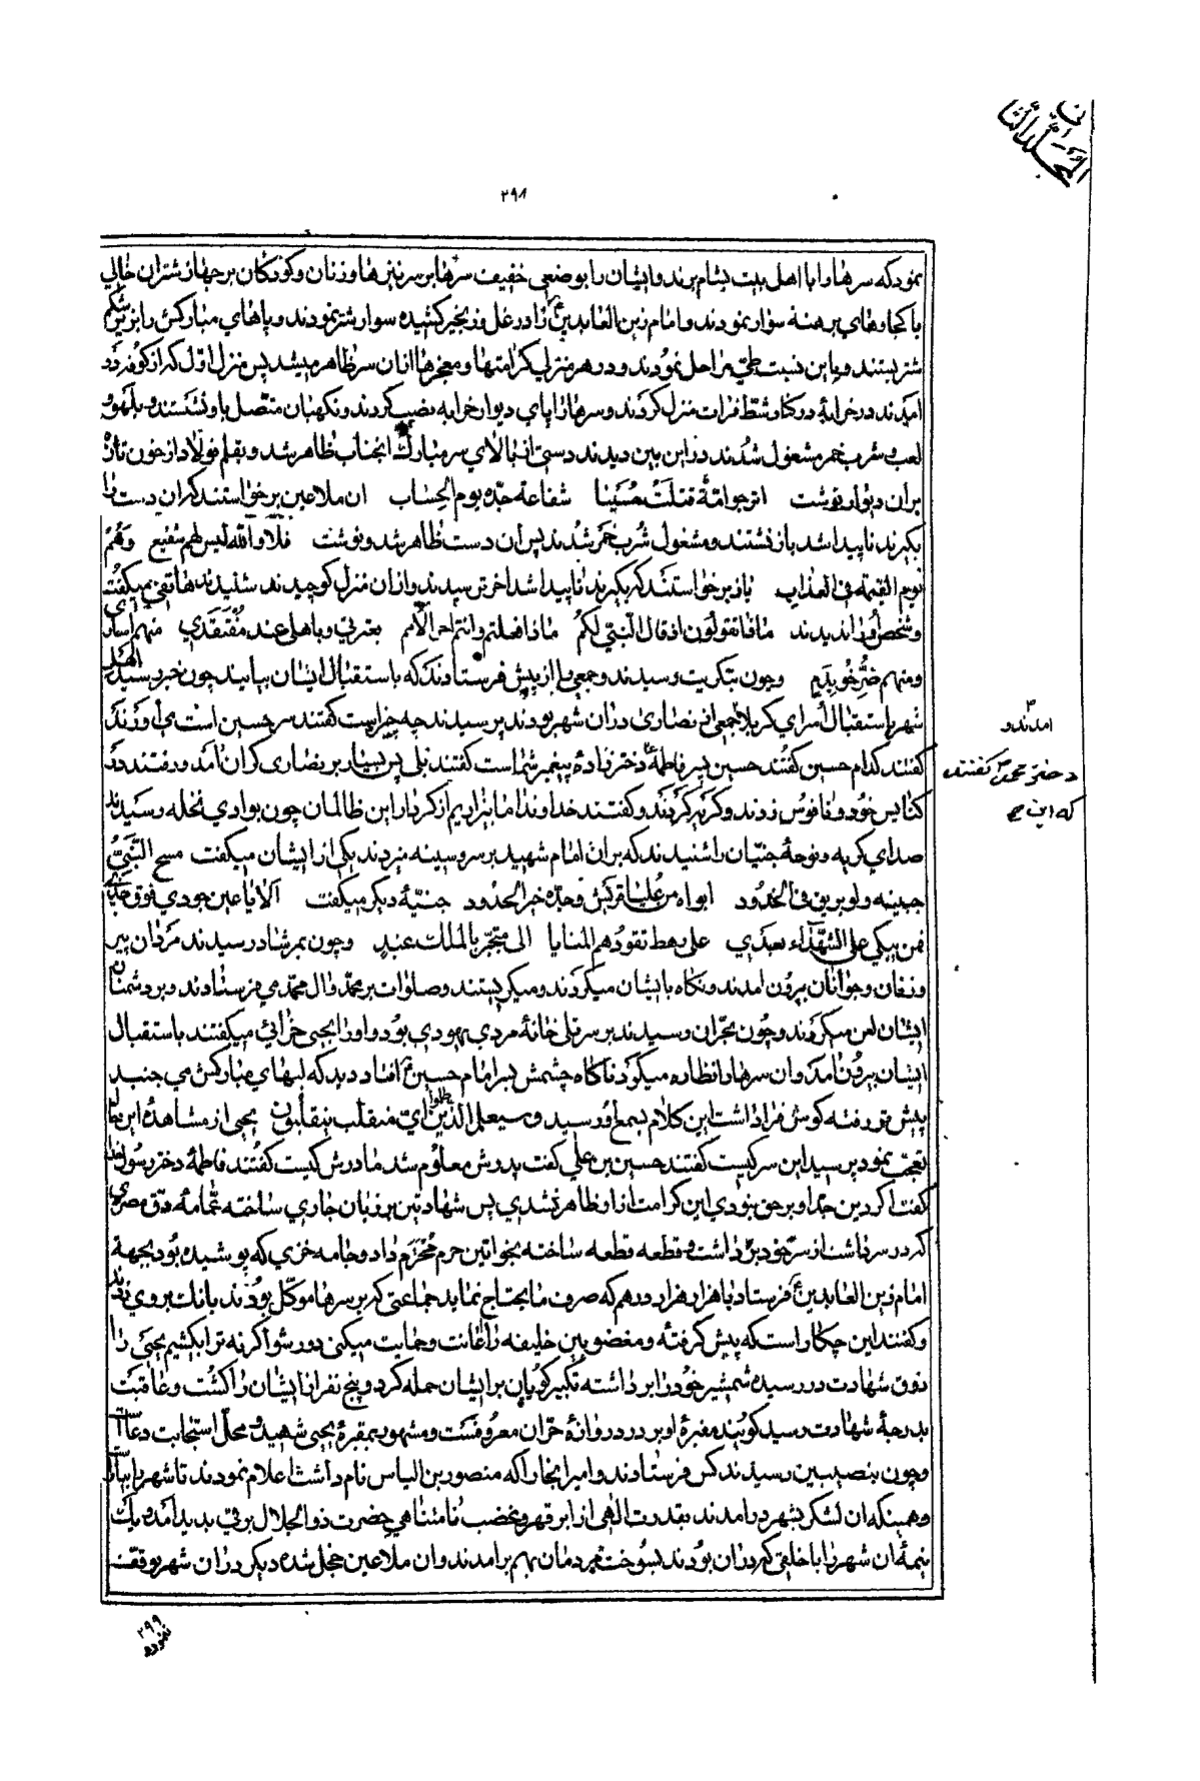 المجلد الثانی
۲۹۸
نمود که سرها را با اهل بیت بشام برند و ایشان را بوضعی خفیف سرها بر سر نیزها و زنان و کودکان بر جهاز شتران خالی
با کجاوهای برهنه سوار نمودند و امام زین العابدین ع را در غل و زنجیر کشیده سوار شتر نمودند و پاهای مبارکش را بزیر شکم
شتر بستند و باین نسبت طی مراحل نمودند و در هر منزلی کرامتها و معجزها ازان سر ظاهر میشد پس منزل اول که از کوفه فرود
امدند در خرابهٔ در کنار شط فرات منزل کردند و سرها را پای دیوار خرابه نصب کردند و نکهبان متصل باو نشستند و بلهو و
لعب و شرب خمر مشغول شدند در این بین دیدند دستی از بالای سر مبارک انجناب ظاهر شد و بقلم فولاد از خون تازه
بران دیوار نوشت اترجوا امة قتلت حسینا شفاعة جده یوم الحساب ان ملاعین برخواستند که ان دست را
بکیرند ناپیدا شد باز نشستند و مشغول شرب خمر شدند پس ان دست ظاهر شد و نوشت فلا والله لیس لهم شفیع وهم
یوم القیمة فی العذاب باز برخواستند که بکیرند ناپیدا شد اخر ترسیدند و ازان منزل کوچیدند شنیدند هاتفی میکفت
و شخص او را ندیدند ماذا تقولون اذ قال النبی لکم ماذا فعلتم وانتم اخر الامم بعترتی و باهلی عند مفتقدی منهم اساری
ومنهم ضرجوا بدم و چون بتکریت رسیدند و جمعی را از پیش فرستادند که باستقبال ایشان بیایند چون خبر رسید اهل
شهر باستقبال اسرای کربلا جمعی از نصاری دران شهر بودند پرسیدند چه خبر است کفتند سر حسین است می اورند
کفتند کدام حسین کفتند حسین پسر فاطمه ع دختر زادهٔ پیغمبر شما است کفتند بلی پس بسیار بر نصاری کران امد و رفتند در
امدند و
دختر محمد ص کفتند
که این
کنایس خود و ناقوس زدند و کریه کردند و کفتند خداوندا ما بیزاریم از کردار این ظالمان چون بوادی نخله رسیدند
صدای کریه و نوحهٔ جنیان را شنیدند که بران امام شهید بر سر و سینه میزدند یکی از ایشان میکفت مسح النبی
جبینه وله بریق فی الخدود ابواه من علیا قریش وجده خیر الجدود جنیهٔ دیکر میکفت الا یا عین جودی فوق خدی
فمن یبکی علی الشهداء بعدی علی رهط تقودهم المنایا الی متجبر بالملک عبد و چون بمرشاد رسیدند مردان پیر
و زنان و جوانان بیرون امدند و نکاه بایشان میکردند و میکریستند و صلوات بر محمد و ال محمد می فرستادند و بر دشمنان
ایشان لعن میکردند و چون بحران رسیدند بر سر تلی خانهٔ مردی یهودی بود و او را یحیی حرانی میکفتند باستقبال
ایشان بیرون امد و ان سرها را نظاره میکرد ناکاه چشمش بسر امام حسین ع افتاد دید که لبهای مبارکش می جنبد
پیش تر رفته کوش فرا داشت این کلام بسمع او رسید وسیعلم الذین ظلموا ای منقلب ینقلبون یحیی از مشاهدهٔ این حال
تعجب نمود پرسید این سر کیست کفتند حسین بن علی کفت پدرش معلوم شد مادرش کیست کفتند فاطمه دختر رسول خدا
کفت اکر دین جد او بر حق نبودی این کرامت از او ظاهر نشدی پس شهادتین بر زبان جاری ساخته عمامهٔ دق مصری
که در سر داشت از سر خود برداشت و قطعه قطعه ساخته بخواتین حرم محترم داد و جامه خزی که پوشیده بود بجهة
امام زین العابدین ع فرستاد با هزار درهم که صرف ما یحتاج نماید جماعتی که بر سرها موکل بودند بانک بر وی زدند
و کفتند این چکار است که پیش کرفتهٔ و مغضوبین خلیفه را اعانت و حمایت میکنی دور شو اکرنه ترا بکشیم یحیی را
ذوق شهادت در رسیده شمشیر خود را بر داشته تکبیر کویان بر ایشان حمله کرد و پنج نفر از ایشان را کشت و عاقبت
بدرجهٔ شهادت رسید کویند مقبرهٔ او بر در دروازهٔ حران معروفست و مشهور بمقبرهٔ یحیی شهید و محل استجابت دعا است
و چون بنصیبین رسیدند کس فرستادند و امیر انجا را که منصور بن الیاس نام داشت اعلام نمودند تا شهر را
و همینکه ان لشکر بشهر درامدند بقدرت الهی از ابر قهر و غضب نامتناهی حضرت ذو الجلال برقی پدید امده یک
نیمهٔ ان شهر را با خلقی که دران بودند بسوخت مردمان بهم برامدند و ان ملاعین خجل شده دیکر دران شهر توقف
۲۹۹
ننموده